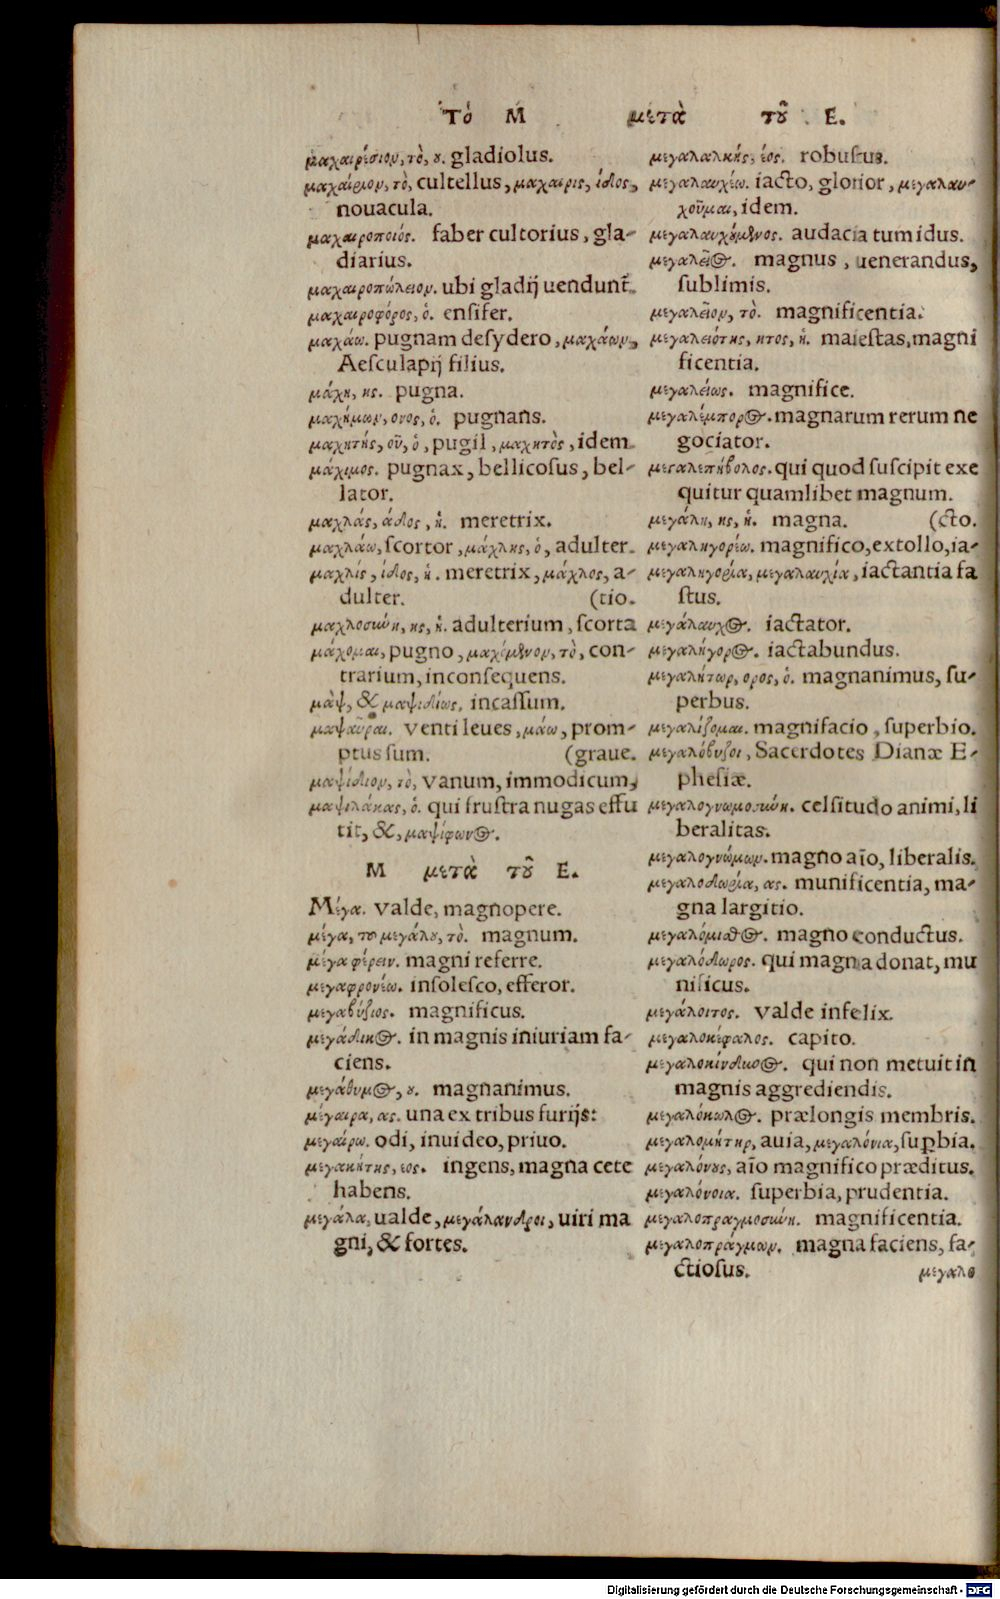 Τὸ Μ μετὰ τȣ͂ Ε.
μαχαιρέσιον, τὸ, ȣ. gladiolus.
μαχαίριον, τὸ, cultellus, μαχαιρις, ίδος,
nouacula.
μαχαιροποιός. faber cultorius, gla-
diarius.
μαχαιροπώλειον. ubi gladij uendunt̃.
μαχαιροφόρος, ὁ. ensifer.
μαχάω. pugnam desydero, μαχάων,
Aesculapij filius.
μάχη, ης. pugna.
μαχήμων, ονος, ὁ. pugnans.
μαχητής, οῦ, ὁ, pugil, μαχητὸς, idem.
μάχιμος. pugnax, bellicosus, bel-
lator.
μαχλάς, άδος, ἡ. meretrix.
μαχλάω, scortor, μάχλης, ὁ, adulter.
μαχλίς, ίδος, ἡ. meretrix, μάχλος, a-
dulter. (tio.
μαχλοσύνη, ης, ἡ. adulterium, scorta
μάχομαι, pugno, μαχόμενον, τὸ, con-
trarium, inconsequens.
μὰψ, & μαψιδίως. incassum.
μαψαῦραι. venti leues, μάω, prom-
ptus sum. (graue.
μαψίδιον, τὸ, vanum, immodicum,
μαψιλάκας, ὁ. qui frustra nugas effu
tit, &, μαψίφωνος.
Μ μετὰ τȣ͂ Ε.
Μέγα. valde, magnopere.
μέγα, τοῦ μεγάλȣ, τὸ. magnum.
μέγα φέρειν. magni referre.
μεγαφρονέω. insolesco, efferor.
μεγαβύζιος. magnificus.
μεγάδικος. in magnis iniuriam fa-
ciens.
μεγάθυμος, ȣ. magnanimus.
μέγαιρα, ας. una ex tribus furijs:
μεγαίρω. odi, inuideo, priuo.
μεγακήτης, εος. ingens, magna cete
habens.
μεγάλα, ualde, μεγάλανδροι, uiri ma
gni, & fortes.
μεγαλαλκής, έος. robustus.
μεγαλαυχέω. iacto, glorior, μεγαλαυ-
χοῦμαι, idem.
μεγαλαυχȣ́μενος. audacia tumidus.
μεγαλεῖος. magnus, uenerandus,
sublimis.
μεγαλεῖον, τὸ. magnificentia.
μεγαλειότης, ητος, ἡ. maiestas, magni
ficentia.
μεγαλείως. magnifice.
μεγαλέμπορος. magnarum rerum ne
gociator.
μεγαλεπήβολος. qui quod suscipit exe
quitur quamlibet magnum.
μεγάλη, ης, ἡ. magna. (cto.
μεγαληγορέω. magnifico, extollo, ia-
μεγαληγορία, μεγαλαυχία, iactantia fa
stus.
μεγάλαυχος. iactator.
μεγαλήγορος. iactabundus.
μεγαλήτωρ, ορος, ὁ. magnanimus, su-
perbus.
μεγαλίζομαι. magnifacio, superbio.
μεγαλόβυζοι, Sacerdotes Dianæ E-
phesiæ.
μεγαλογνωμοσύνη. celsitudo animi, li
beralitas.
μεγαλογνώμων. magno aīo, liberalis.
μεγαλοδωρία, ας. munificentia, ma-
gna largitio.
μεγαλόμισθος. magno conductus.
μεγαλόδωρος. qui magna donat, mu
nificus.
μεγάλοιτος. valde infelix.
μεγαλοκέφαλος. capito.
μεγαλοκίνδυνος. qui non metuit in
magnis aggrediendis.
μεγαλόκωλος. prælongis membris.
μεγαλομήτηρ, auia, μεγαλόνια, suꝑbia.
μεγαλόνȣς, aīo magnifico præditus.
μεγαλόνοια. superbia, prudentia.
μεγαλοπραγμοσύνη. magnificentia.
μεγαλοπράγμων. magna faciens, fa-
ctiosus. μεγαλο
Digitalisierung gefördert durch die Deutsche Forschungsgemeinschaft - DFG